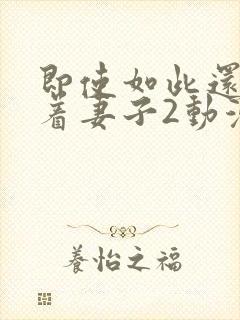 即使如此還
着妻子2動
養怡之福